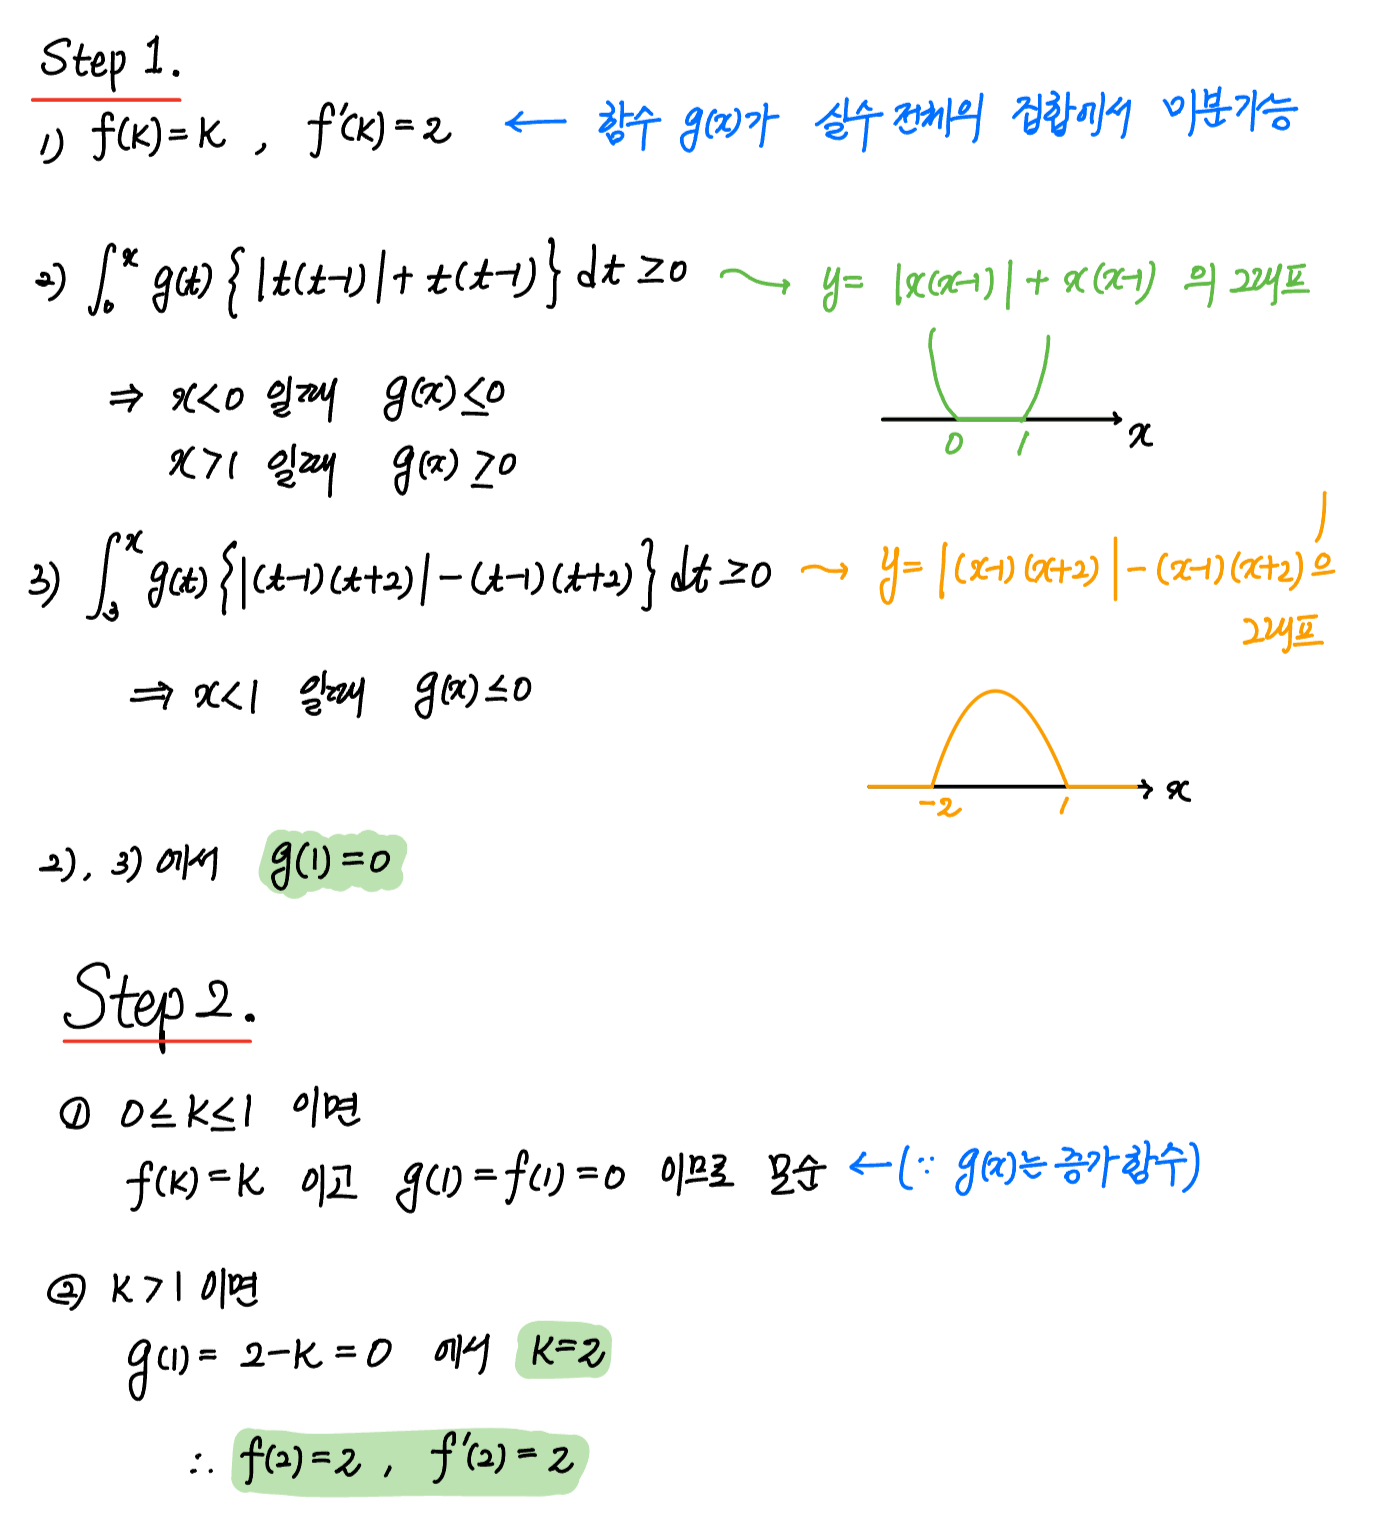 Step 1.
1) f(k)=k , f'(k)=2 ← 함수 g(x)가 실수 전체의 집합에서 미분가능
2) ∫₀ˣ g(t){|t(t-1)|+t(t-1)}dt ≥0 → y= |x(x-1)|+x(x-1) 의 그래프
⇒ x<0 일때 g(x)≤0
x>1 일때 g(x)≥0
0 1 x
3) ∫₃ˣ g(t){|(t-1)(t+2)|-(t-1)(t+2)}dt ≥0 → y=|(x-1)(x+2)|-(x-1)(x+2)의
그래프
⇒ x<1 일때 g(x)≤0
-2 1 x
2), 3)에서 g(1)=0
Step 2.
① 0≤k≤1 이면
f(k)=k 이고 g(1)=f(1)=0 이므로 모순 ←(∵ g(x)는 증가함수)
② k>1 이면
g(1)= 2-k=0 에서 k=2
∴ f(2)=2 , f'(2)=2